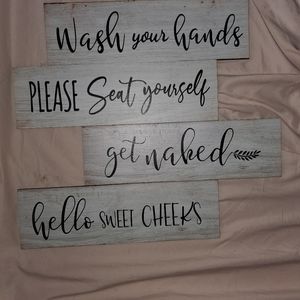 Wash your hands
PLEASE Seat yourself
get naked
hello SWEET CHEEKS